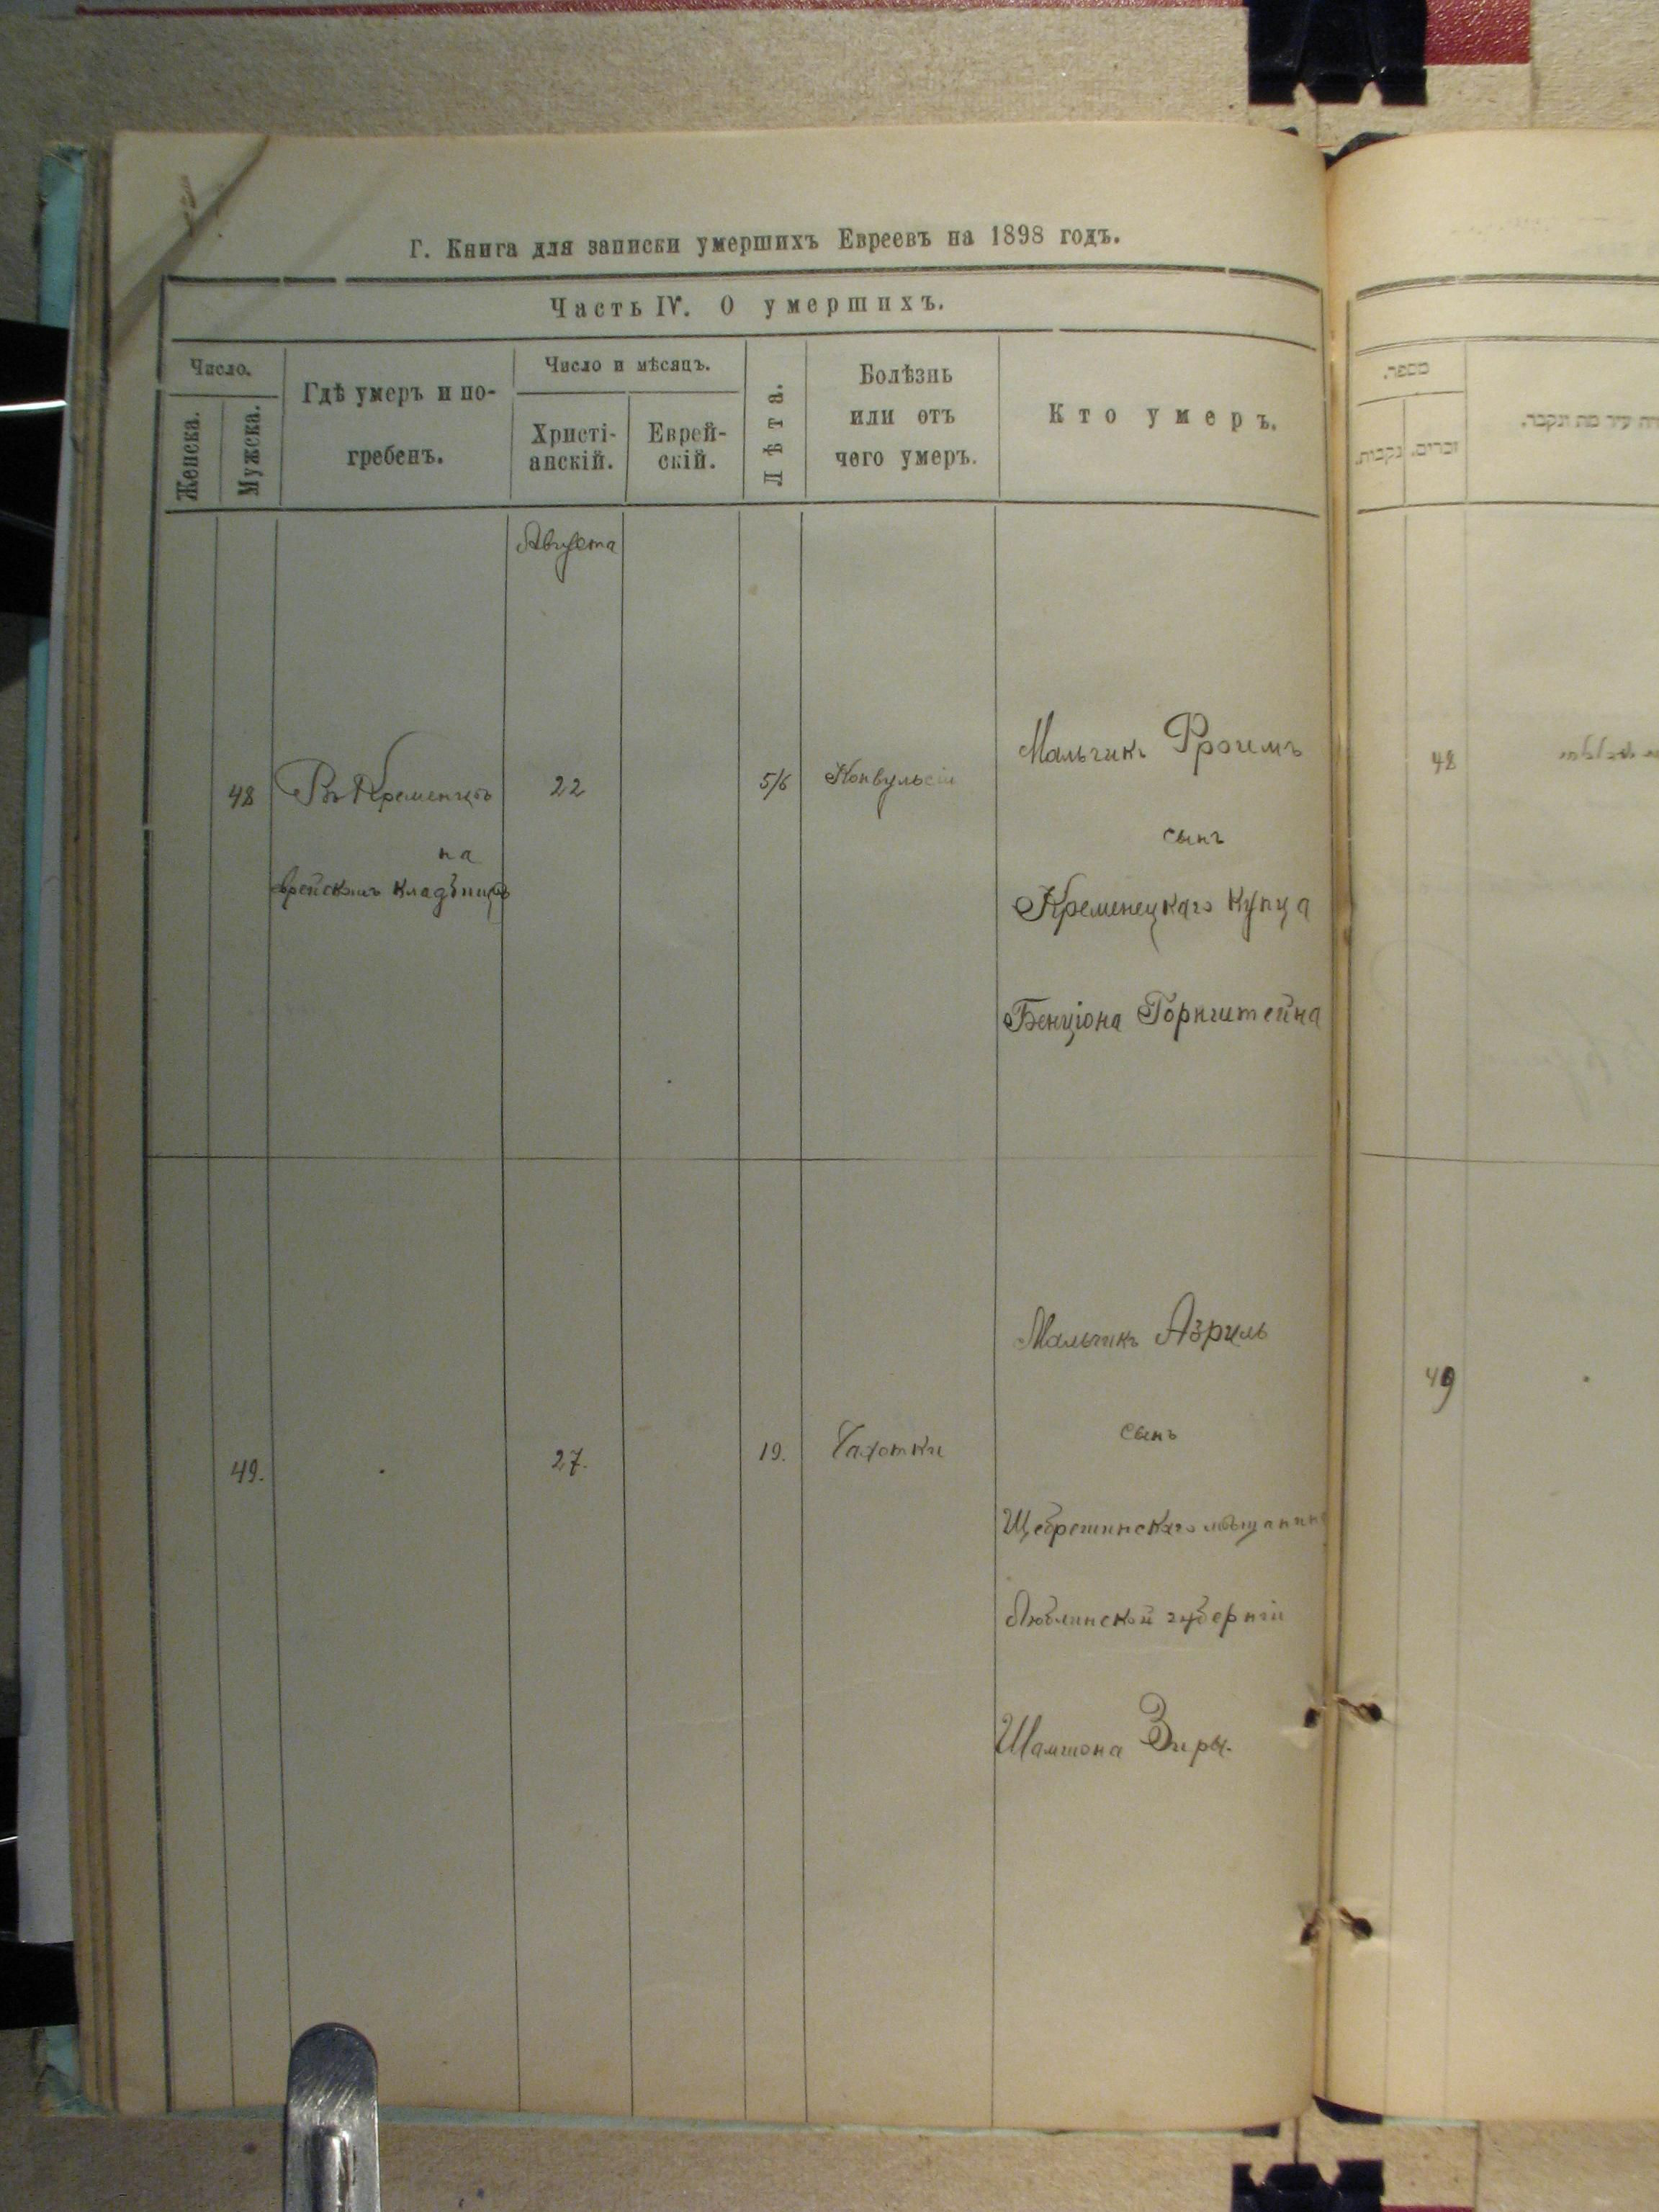 Г. Книга для записки умершихъ Евреевъ на 1898 годъ.
Часть IV. О умершихъ.
Число.
Женска.
Мужска.
Гдѣ умеръ и по-
гребенъ.
Число и мѣсяцъ.
Христі-
анскій.
Еврей-
скій.
Лѣта.
Болѣзнь
или отъ
чего умеръ.
Кто умеръ.
מספר.
זכרים.
נקבות.
עיר מת ונקבר.
Августа
48
Въ Кременцѣ
на
еврейскомъ кладбищѣ
22
5/6
Конвульсіи
Мальчикъ Фроимъ
сынъ
Кременецкаго купца
Бенціона Горнштейна
48
49.
27.
19.
Чахотки
Мальчикъ Азриль
сынъ
Щебрешинскаго мѣщанина
Люблинской губерніи
Шамшона Зиры.
49